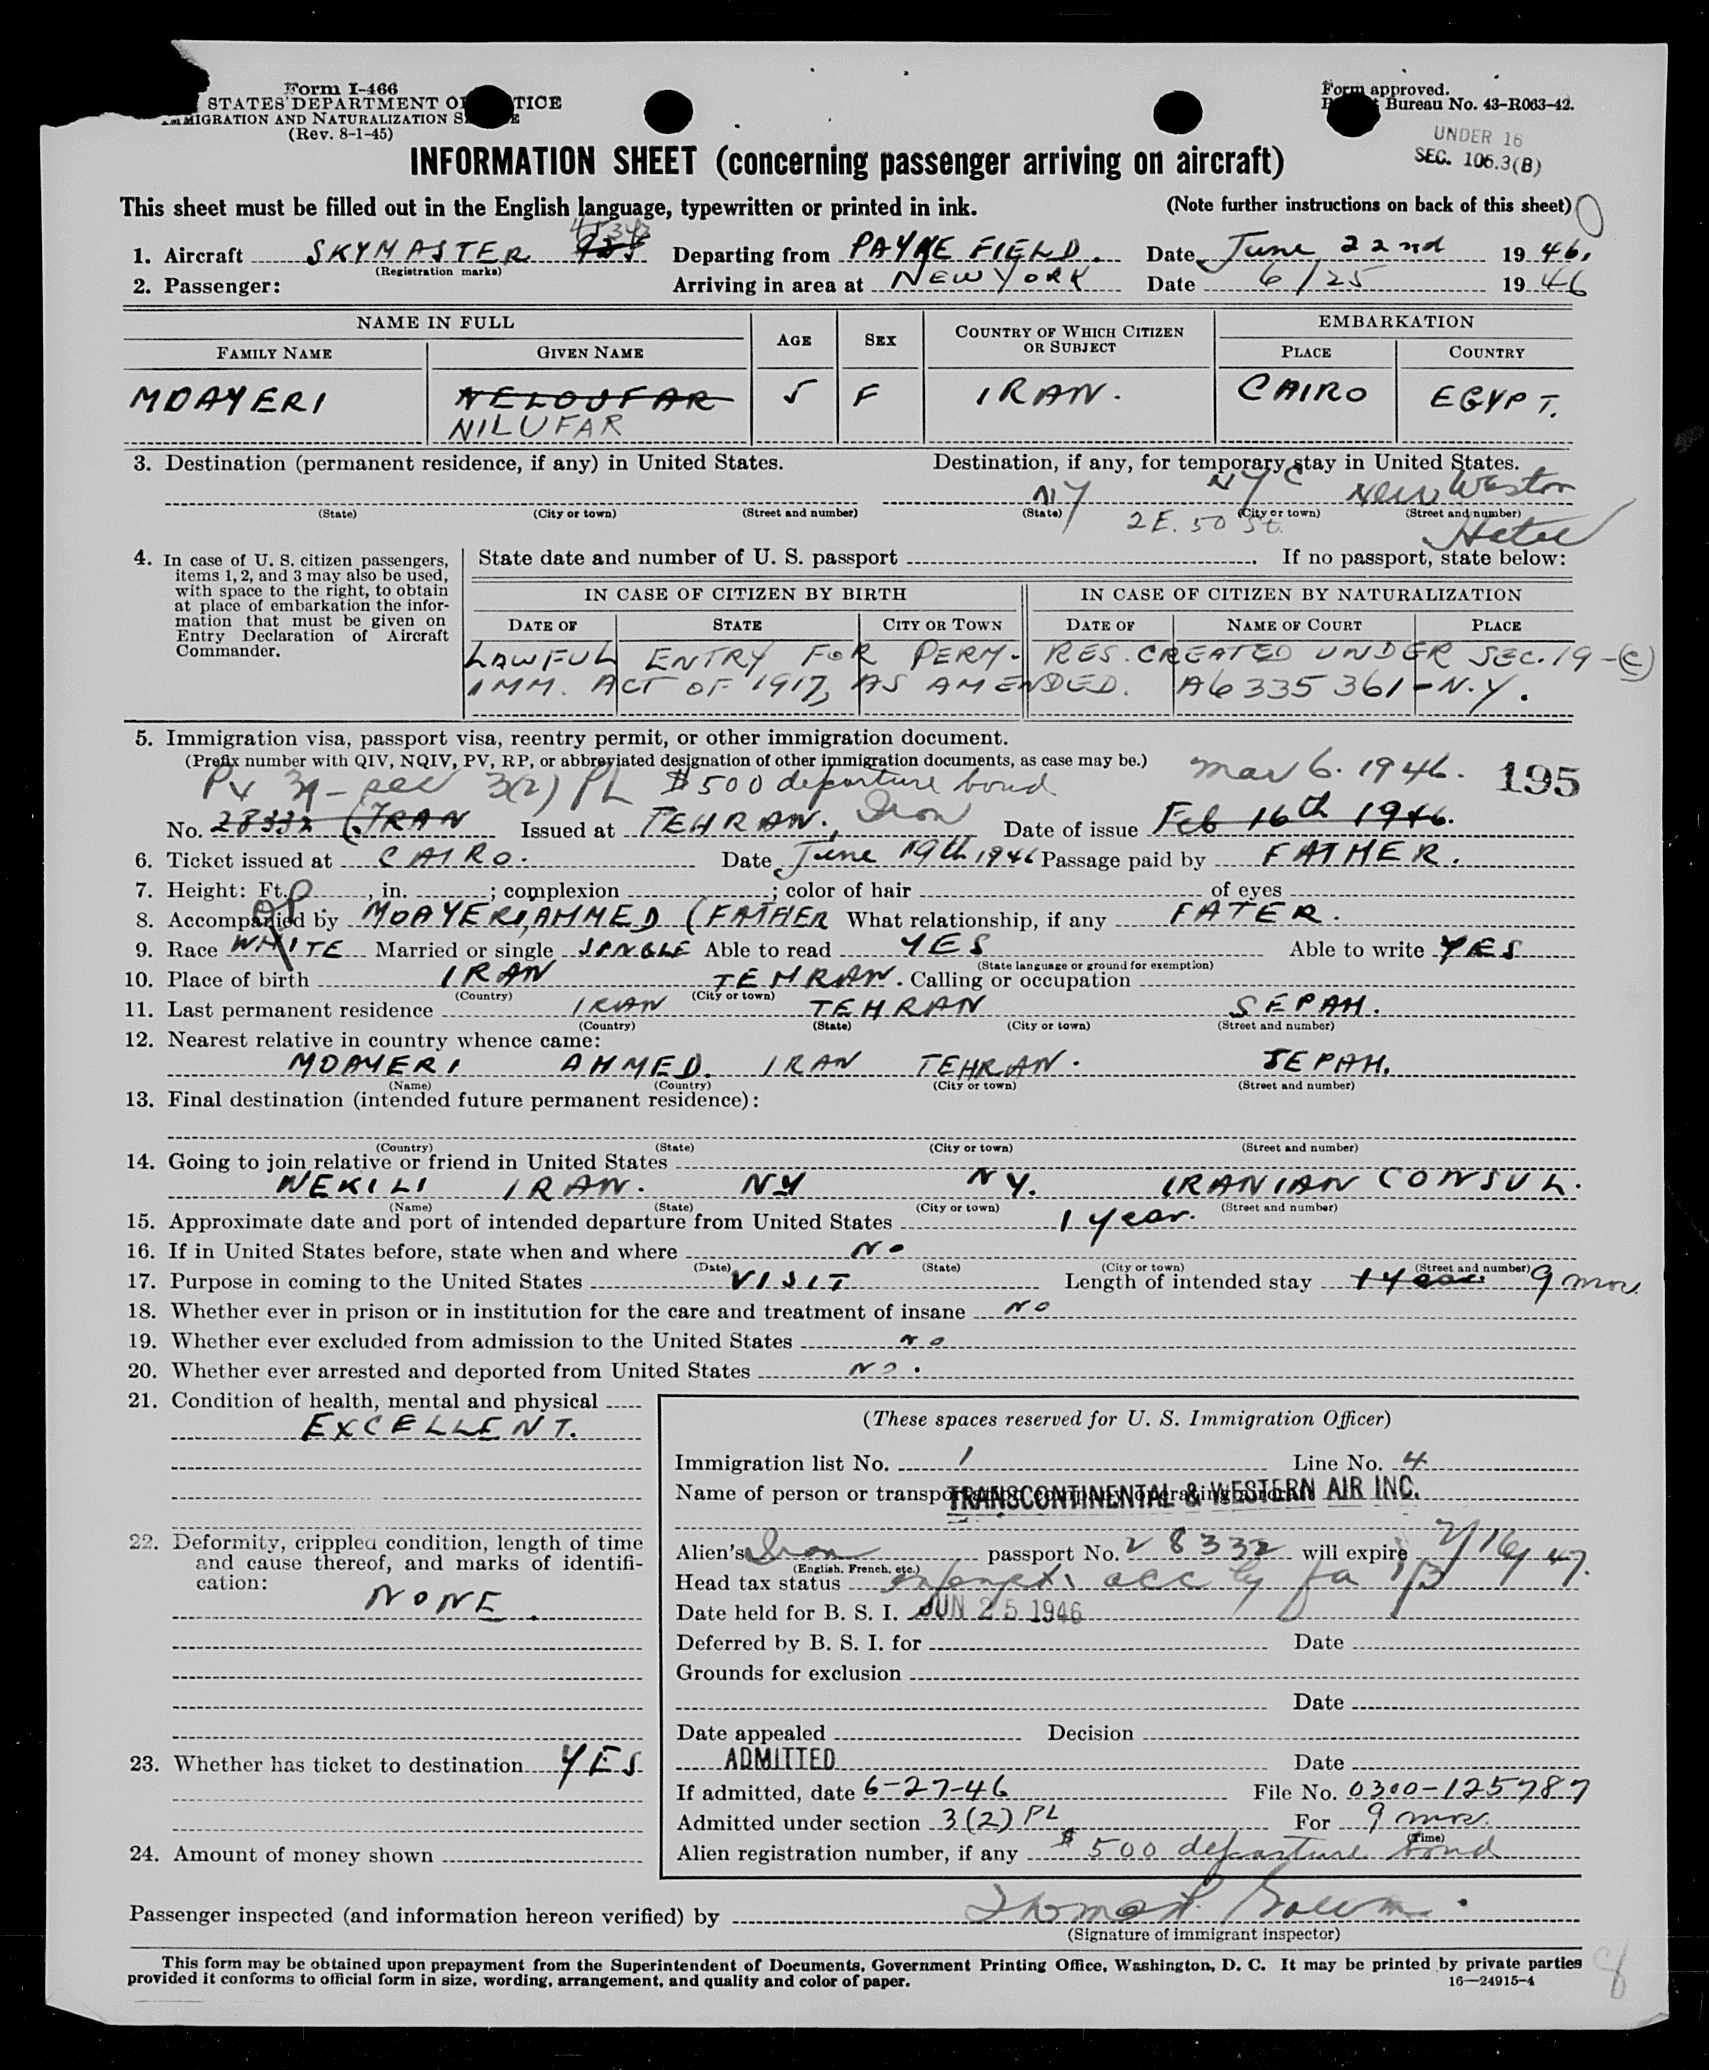 Form I-466
STATES DEPARTMENT OF JUSTICE
IMMIGRATION AND NATURALIZATION SERVICE
(Rev. 8-1-45)
Form approved.
Bureau No. 43-R063-42.
UNDER 16
SEC. 106.3(B)
INFORMATION SHEET (concerning passenger arriving on aircraft)
This sheet must be filled out in the English language, typewritten or printed in ink. (Note further instructions on back of this sheet)
1. Aircraft SKYMASTER Departing from PAYNE FIELD. Date June 22nd 1946.
(Registration marks)
2. Passenger: Arriving in area at NEW YORK Date 6/25 1946
NAME IN FULL AGE SEX COUNTRY OF WHICH CITIZEN OR SUBJECT EMBARKATION
FAMILY NAME GIVEN NAME PLACE COUNTRY
MOAYERI NELOUFAR 5 F IRAN. CAIRO EGYPT.
NILUFAR
3. Destination (permanent residence, if any) in United States. Destination, if any, for temporary stay in United States.
NY NYC New Weston
(State) (City or town) (Street and number) (State) (City or town) (Street and number)
2 E. 50 St. Hotel
4. In case of U. S. citizen passengers, items 1, 2, and 3 may also be used, with space to the right, to obtain at place of embarkation the information that must be given on Entry Declaration of Aircraft Commander.
State date and number of U. S. passport . If no passport, state below:
IN CASE OF CITIZEN BY BIRTH IN CASE OF CITIZEN BY NATURALIZATION
DATE OF STATE CITY OR TOWN DATE OF NAME OF COURT PLACE
LAWFUL ENTRY FOR PERM. RES. CREATED UNDER SEC. 19-(C)
IMM. ACT OF 1917, AS AMENDED. A6335361-N.Y.
5. Immigration visa, passport visa, reentry permit, or other immigration document.
(Prefix number with QIV, NQIV, PV, RP, or abbreviated designation of other immigration documents, as case may be.)
PV sec 3(2) PL $500 departure bond Mar 6. 1946. 195
No. 28332 (IRAN Issued at TEHRAN., Iran Date of issue Feb 16th 1946.
6. Ticket issued at CAIRO. Date June 19th 1946 Passage paid by FATHER.
7. Height: Ft. , in. ; complexion ; color of hair of eyes
8. Accompanied by MOAYERI, AHMED (FATHER What relationship, if any FATER.
9. Race WHITE Married or single SINGLE Able to read YES Able to write YES
(State language or ground for exemption)
10. Place of birth IRAN TEHRAN. Calling or occupation
(Country) (City or town)
11. Last permanent residence IRAN TEHRAN SEPAH.
(Country) (State) (City or town) (Street and number)
12. Nearest relative in country whence came:
MOAYERI AHMED. IRAN TEHRAN. SEPAH.
(Name) (Country) (City or town) (Street and number)
13. Final destination (intended future permanent residence):
(Country) (State) (City or town) (Street and number)
14. Going to join relative or friend in United States
NEKILI IRAN. NY NY. IRANIAN CONSUL.
(Name) (State) (City or town) (Street and number)
15. Approximate date and port of intended departure from United States 1 year.
16. If in United States before, state when and where No
(Date) (State) (City or town) (Street and number)
17. Purpose in coming to the United States VISIT Length of intended stay 1 year 9 mos.
18. Whether ever in prison or in institution for the care and treatment of insane NO
19. Whether ever excluded from admission to the United States NO
20. Whether ever arrested and deported from United States NO.
21. Condition of health, mental and physical
EXCELLENT.
22. Deformity, crippled condition, length of time and cause thereof, and marks of identification:
NONE.
23. Whether has ticket to destination YES
24. Amount of money shown
(These spaces reserved for U. S. Immigration Officer)
Immigration list No. 1 Line No. 4
Name of person or TRANSCONTINENTAL & WESTERN AIR INC.
Alien's Iran passport No. 28332 will expire 2/16/47.
(English, French, etc.)
Head tax status exempt. acc by fa
Date held for B. S. I. JUN 25 1946
Deferred by B. S. I. for Date
Grounds for exclusion
Date
Date appealed Decision
ADMITTED Date
If admitted, date 6-27-46 File No. 0300-125787
Admitted under section 3(2) PL For 9 mos.
(Time)
Alien registration number, if any $500 departure bond
Passenger inspected (and information hereon verified) by
(Signature of immigrant inspector)
This form may be obtained upon prepayment from the Superintendent of Documents, Government Printing Office, Washington, D. C. It may be printed by private parties
provided it conforms to official form in size, wording, arrangement, and quality and color of paper. 16—24915-4
8